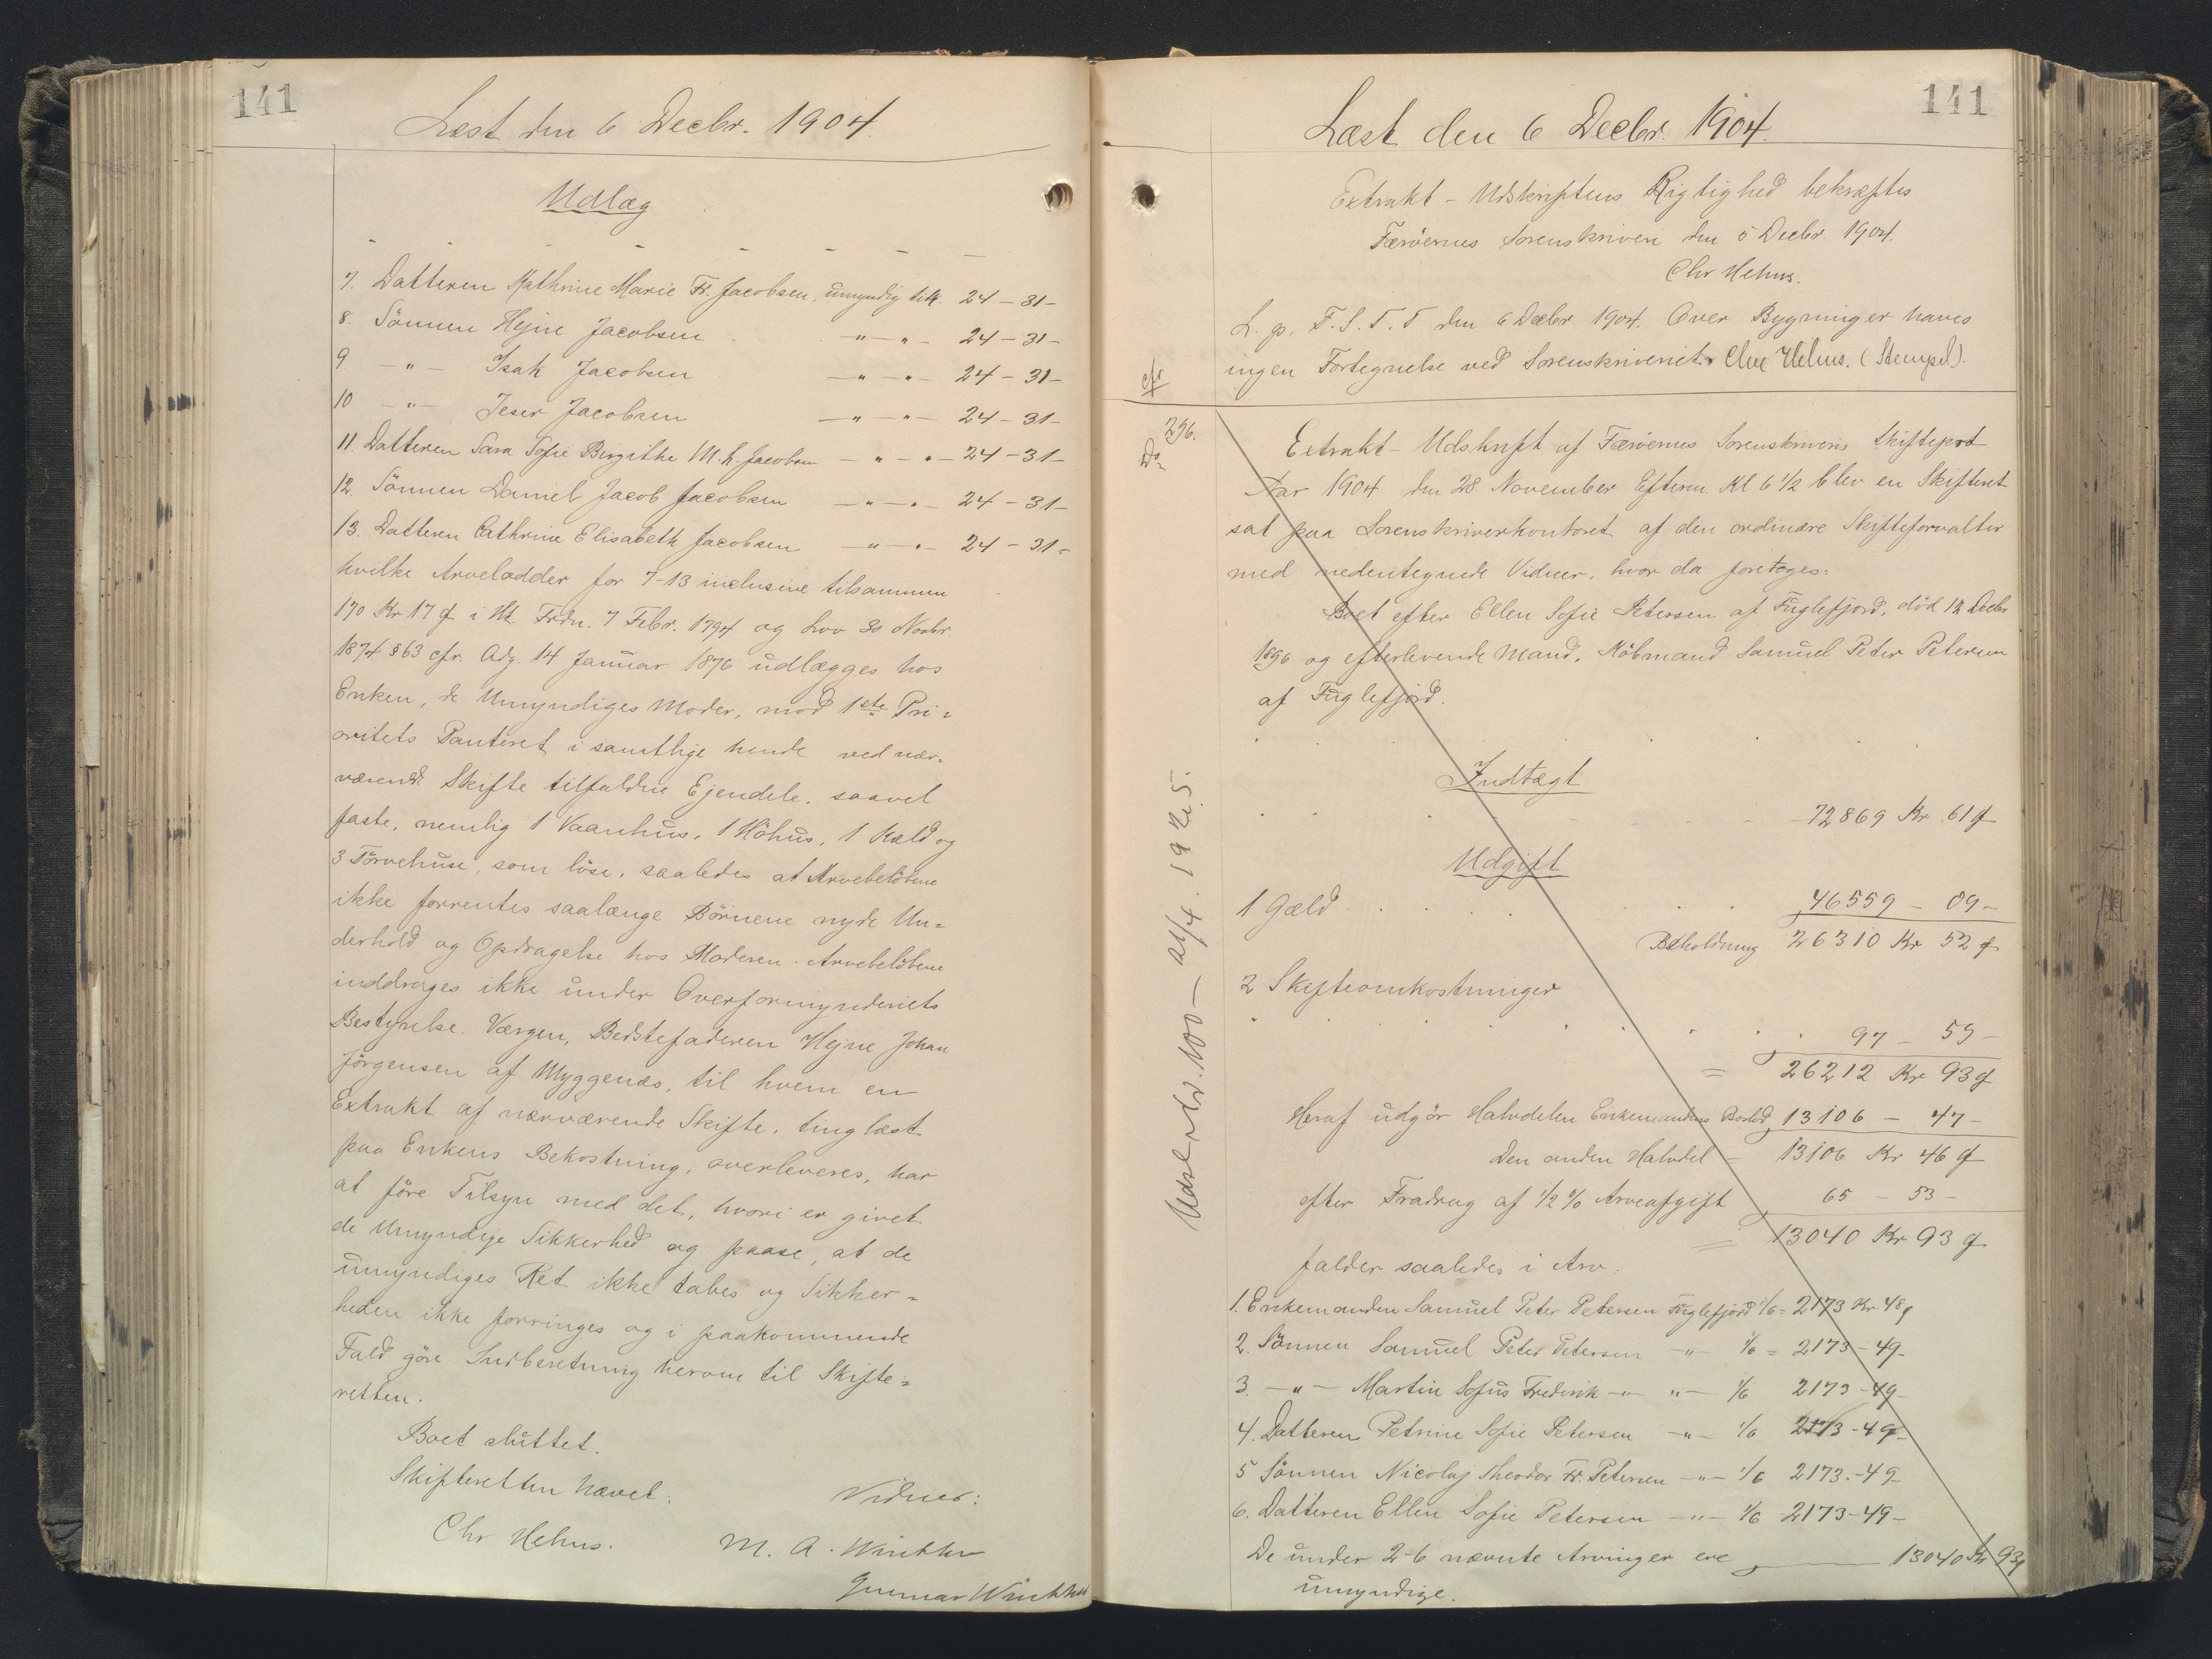 141
Læst den 6 Decbr. 1904.
Udlæg
7. Datteren Kathrine Marie Fr. Jacobsen, umyndig tilk. 24 - 31 -
8. Sönnen Hejne Jacobsen - " - " - 24 - 31 -
9 - " - Isak Jacobsen - " - " - 24 - 31 -
10 - " - Jeser Jacobsen - " - " - 24 - 31 -
11. Datteren Sara Sofie Birgithe M. H. Jacobsen - " - " - 24 - 31 -
12. Sönnen Daniel Jacob Jacobsen - " - " - 24 - 31 -
13. Datteren Cathrine Elisabeth Jacobsen - " - " - 24 - 31 -
hvilke Arvelodder for 7-13 inclusive tilsammen
170 Kr 17 Ø i Flt. Frdn. 7 Febr. 1794 og Lov 30 Novbr
1874 § 63 cfr. Adg. 14 Januar 1876 udlægges hos
Enken, de Umyndiges Moder, mod 1ste Pri-
oritets Panteret i samtlige hende ved nær-
værende Skifte tilfaldne Ejendele, saavel
faste, nemlig 1 Vaanhus, 1 Höhus, 1 Kæld og
3 Törvehuse, som löse, saaledes at Arvebelöbene
ikke forrentes saalænge Börnene nyde Un-
derhold og Opdragelse hos Moderen. Arvebelöbene
inddrages ikke under Overformynderiets
Bestyrelse. Værgen, Bedstefaderen Hejne Johan
Jörgensen af Myggenæs, til hvem en
Extrakt af nærværende Skifte, tinglæst
paa Enkens Bekostning, overleveres, har
at före Tilsyn med det, hvori er givet
de Umyndige Sikkerhed og paase, at de
umyndiges Ret ikke tabes og Sikker-
heden ikke forringes og i paakommende
Fald göre Indberetning herom til Skifte-
retten.
Boet sluttet.
Skifteretten hævet.
Vidner:
Chr Hehns.
M. A. Winther
Gunnar Winther
141
Læst den 6 Decbr. 1904.
Extrakt - Udskriftens Rigtighed bekræftes
Færöernes Sorenskriveri den 5 Decbr. 1904.
Chr Hehns.
L. p. F. S. T. T den 6 Decbr 1904. Over Bygninger haves
ingen Fortegnelse ved Sorenskriveriet. Chr Hehns. (Stempel).
cfr
296.
Do
Extrakt - Udskrift af Færöernes Sorenskriveris Skifteprot
Aar 1904 den 28 November Efterm. Kl 6 1/2 blev en Skifteret
sat paa Sorenskriverkontoret af den ordinære Skifteforvalter
med nedentegnede Vidner, hvor da foretoges:
Boet efter Ellen Sofie Petersen af Fuglefjord, död 12 Decbr
1896 og efterlevende Mand, Köbmand Samuel Peter Petersen
af Fuglefjord.
Indtægt
72869 Kr. 61 Ø
Udgift
1 Gæld 46559 - 09 -
Beholdning 26310 Kr 52 Ø
2 Skifteomkostninger
97 - 59 -
= 26212 Kr 93 Ø
Heraf udgör Halvdelen Enkemandens Boslod 13106 - 47 -
Den anden Halvdel = 13106 Kr 46 Ø
efter Fradrag af 1/2 % Arveafgift 65 - 53 -
= 13040 Kr 93 Ø
falder saaledes i Arv:
1. Enkemanden Samuel Peter Petersen Fuglefjord 1/6 = 2173 Kr 48 Ø
2. Sönnen Samuel Peter Petersen - " - 1/6 = 2173 - 49 -
3. - " - Martin Sofus Frederik - " - " - 1/6 2173 - 49 -
4. Datteren Petrine Sofie Petersen - " - 1/6 2173 - 49 -
5 Sönnen Nicolaj Theodor Fr. Petersen - " - 1/6 2173 - 49
6. Datteren Ellen Sofie Petersen - " - 1/6 2173 - 49 -
De under 2-6 nævnte Arvinger ere 13040 Kr 93 Ø
umyndige.